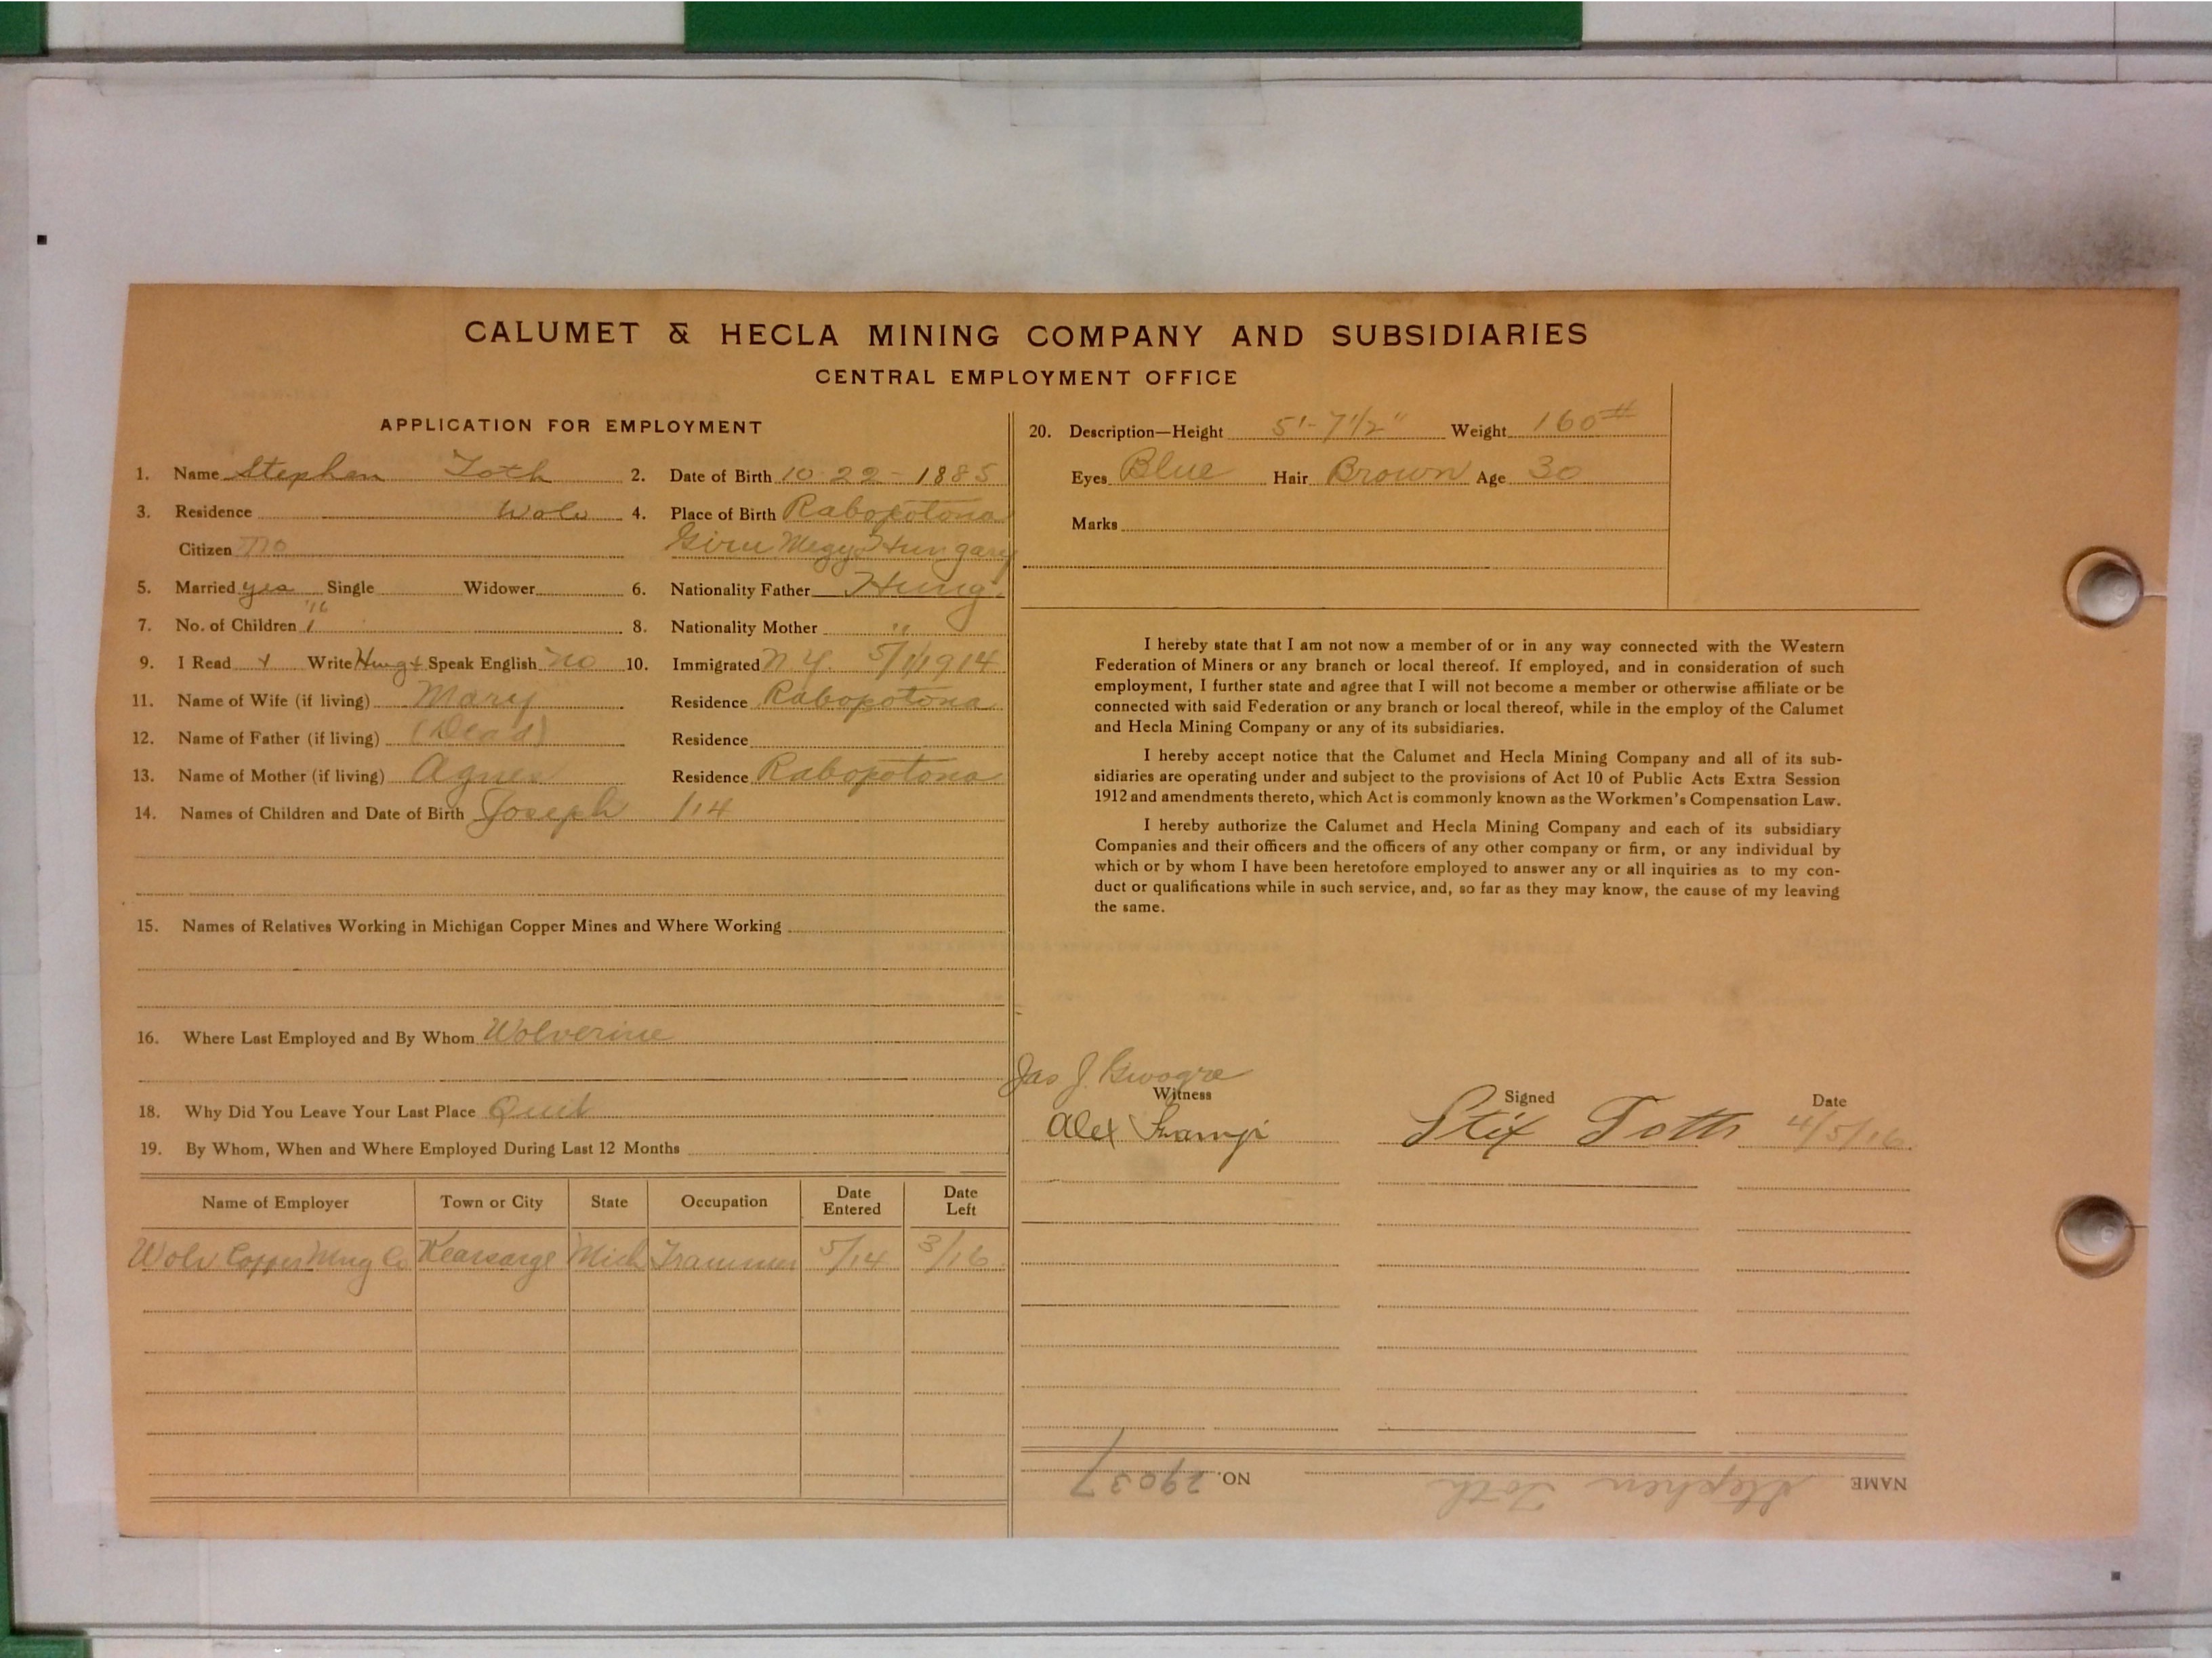 CALUMET & HECLA MINING COMPANY AND SUBSIDIARIES
CENTRAL EMPLOYMENT OFFICE
APPLICATION FOR EMPLOYMENT
1. Name Stephen Toth 2. Date of Birth 10-22-1885
3. Residence Wolv 4. Place of Birth Rabopotona
Citizen no Hungary
5. Married yes Single Widower 6. Nationality Father Hung.
7. No. of Children 1 8. Nationality Mother "
9. I Read + Write Hung + Speak English no 10. Immigrated N.Y. 5/1/1914
11. Name of Wife (if living) Mary Residence Rabopotona
12. Name of Father (if living) (Dead) Residence
13. Name of Mother (if living) Agnes Residence Rabopotona
14. Names of Children and Date of Birth Joseph 1/14
15. Names of Relatives Working in Michigan Copper Mines and Where Working
16. Where Last Employed and By Whom Wolverine
18. Why Did You Leave Your Last Place Quit
19. By Whom, When and Where Employed During Last 12 Months
Name of Employer Town or City State Occupation Date Entered Date Left
Wolv Copper Mng Co Kearsarge Mich Trammer 5/14 3/16
20. Description—Height 5'-7 1/2" Weight 160#
Eyes Blue Hair Brown Age 30
Marks
I hereby state that I am not now a member of or in any way connected with the Western
Federation of Miners or any branch or local thereof. If employed, and in consideration of such
employment, I further state and agree that I will not become a member or otherwise affiliate or be
connected with said Federation or any branch or local thereof, while in the employ of the Calumet
and Hecla Mining Company or any of its subsidiaries.
I hereby accept notice that the Calumet and Hecla Mining Company and all of its sub-
sidiaries are operating under and subject to the provisions of Act 10 of Public Acts Extra Session
1912 and amendments thereto, which Act is commonly known as the Workmen's Compensation Law.
I hereby authorize the Calumet and Hecla Mining Company and each of its subsidiary
Companies and their officers and the officers of any other company or firm, or any individual by
which or by whom I have been heretofore employed to answer any or all inquiries as to my con-
duct or qualifications while in such service, and, so far as they may know, the cause of my leaving
the same.
Jas J.
Witness Signed Date
Alex Toth 4/5/16
NAME Stephen Toth NO. 29037